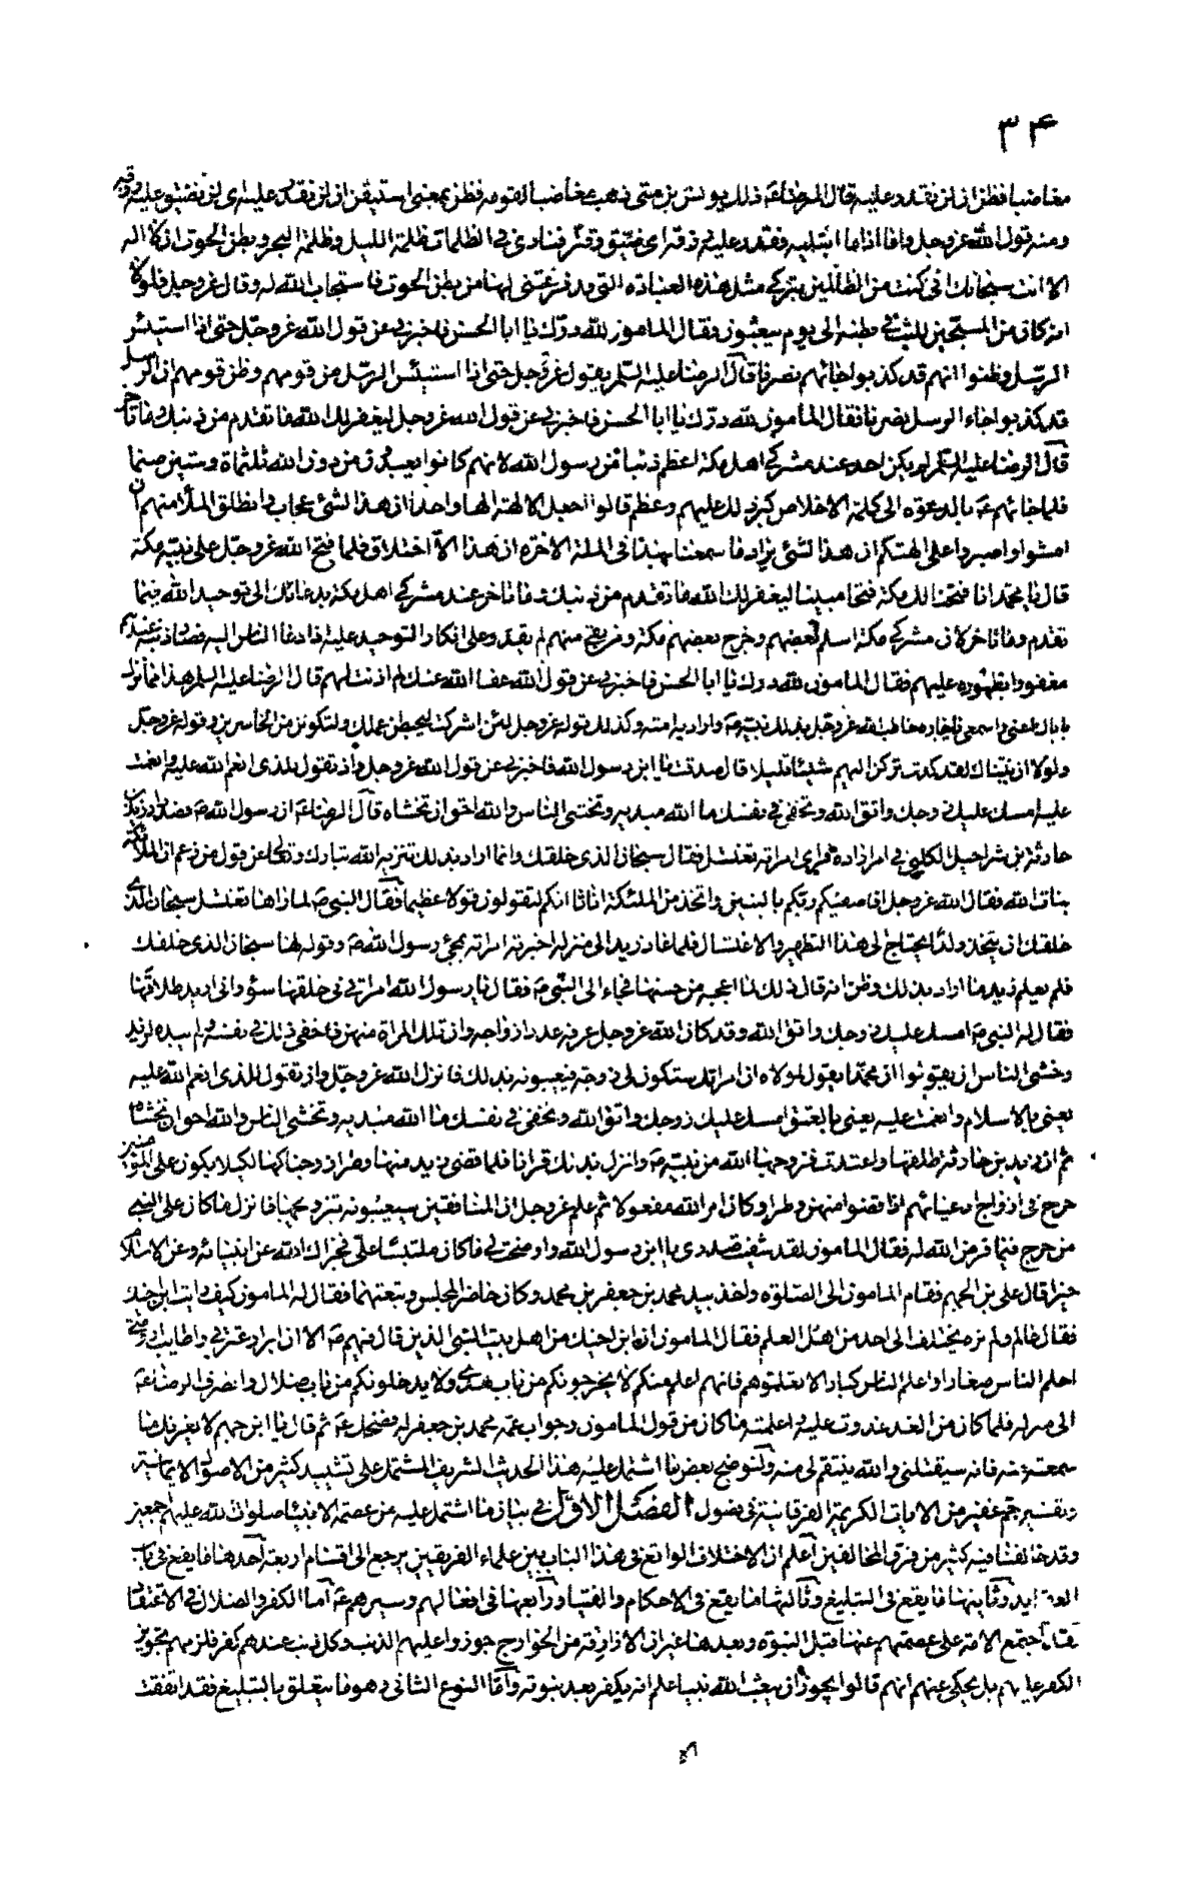 ٣٤
مغاضبا فظن ان لن نقدر عليه قال الرضا ع ذلك يونس بن متى ذهب مغاضبا لقومه فظن بمعنى استيقن ان لن نقدر عليه اى لن نضيق عليه رزقه
ومنه قول الله عز وجل واما اذا ما ابتليه فقدر عليه رزقه اى ضيق وقتر فنادى فى الظلمات ظلمة الليل وظلمة البحر وبطن الحوت ان لا اله
الا انت سبحانك انى كنت من الظالمين بتركى مثل هذه العبادة التى قد فرغتنى لها من بطن الحوت فاستجاب الله له وقال عز وجل فلولا
انه كان من المسبحين للبث فى بطنه الى يوم يبعثون فقال المامون لله درك يا ابا الحسن فاخبرنى عن قول الله عز وجل حتى اذا استيئس
الرسل وظنوا انهم قد كذبوا جائهم نصرنا قال الرضا عليه السلم يقول عز وجل حتى اذا استيئس الرسل من قومهم وظن قومهم ان الرسل
قد كذبوا جاء الرسل نصرنا فقال المامون لله درك يا ابا الحسن فاخبرنى عن قول الله عز وجل ليغفر لك الله ما تقدم من ذنبك وما تاخر
قال الرضا عليه السلم لم يكن احد عند مشركى اهل مكة اعظم ذنبا من رسول الله لانهم كانوا يعبدون من دون الله ثلثماة وستين صنما
فلما جائهم ع بالدعوة الى كلمة الاخلاص كبر ذلك عليهم وعظم قالوا اجعل الالهة الها واحدا ان هذا لشئ عجاب وانطلق الملأ منهم ان
امشوا واصبروا على الهتكم ان هذا لشئ يراد ما سمعنا بهذا فى الملة الاخرة ان هذا الا اختلاق فلما فتح الله عز وجل على نبيه مكة
قال يا محمد انا فتحنا لك مكة فتحا مبينا ليغفر لك الله ما تقدم من ذنبك وما تاخر عند مشركى اهل مكة بدعائك الى توحيد الله فيما
تقدم وما تاخر لان مشركى مكة اسلم بعضهم وخرج بعضهم مكة ومن بقى منهم لم يقدر على انكار التوحيد عليه اذا دعا الناس اليه فصار ذنبه عندهم
مغفورا بظهوره عليهم فقال المامون لله درك يا ابا الحسن فاخبرنى عن قول الله عفا الله عنك لم اذنت لهم قال الرضا عليه السلم هذا مما نزل
باياك اعنى واسمعى يا جاره خاطب الله عز وجل بذلك نبيه ص واراد به امته وكذلك قوله عز وجل لئن اشركت ليحبطن عملك ولتكونن من الخاسرين وقوله عز وجل
ولولا ان ثبتناك لقد كدت تركن اليهم شيئا قليلا قال صدقت يا ابن رسول الله فاخبرنى عن قول الله عز وجل واذ تقول للذى انعم الله عليه وانعمت
عليه امسك عليك زوجك واتق الله وتخفى فى نفسك ما الله مبديه وتخشى الناس والله احق ان تخشاه قال الرضا ع ان رسول الله ص قصد دار زيد بن
حارثة بن شراحيل الكلبى فى امر اراده فراى امراته تغتسل فقال سبحان الذى خلقك وانما اراد بذلك تنزيه الله تبارك وتعالى عن قول من زعم ان الملائكة
بنات الله فقال الله عز وجل افاصفيكم ربكم بالبنين واتخذ من الملئكة اناثا انكم لتقولون قولا عظيما فقال النبى ص لما راها تغتسل سبحان الذى
خلقك ان يتخذ ولدا يحتاج الى هذا التطهير والاغتسال فلما عاد زيد الى منزله اخبرته امراته بمجئ رسول الله ص وقوله لها سبحان الذى خلقك
فلم يعلم زيد ما اراد بذلك وظن انه قال ذلك لما اعجبه من حسنها فجاء الى النبى ص فقال يا رسول الله امراتى فى خلقها سوء وانى اريد طلاقها
فقال له النبى ص امسك عليك زوجك واتق الله وقد كان الله عز وجل عرفه عدد ازواجه وان تلك المراة منهن فاخفى ذلك فى نفسه ولم يبده لزيد
وخشى الناس ان يقولوا ان محمدا يقول لمولاه ان امراتك ستكون لى زوجة فيعيبونه بذلك فانزل الله عز وجل واذ تقول للذى انعم الله عليه
يعنى بالاسلام وانعمت عليه يعنى بالعتق امسك عليك زوجك واتق الله وتخفى فى نفسك ما الله مبديه وتخشى الناس والله احق ان تخشاه
ثم ان زيد بن حارثة طلقها واعتدت فزوجها الله من نبيه ص وانزل بذلك قرانا فلما قضى زيد منها وطرا زوجناكها لكيلا يكون على المؤمنين
حرج فى ازواج ادعيائهم اذا قضوا منهن وطرا وكان امر الله مفعولا ثم علم عز وجل ان المنافقين سيعيبونه بتزويجها فانزل ما كان على النبى
من حرج فيما فرض الله له فقال المامون لقد شفيت صدرى يا ابن رسول الله واوضحت لى ما كان ملتبسا على فجزاك الله عن انبيائه وعن الاسلام
خيرا قال على بن الجهم فقام المامون الى الصلوة واخذ بيد محمد بن جعفر بن محمد وكان حاضر المجلس وتبعتهما فقال له المامون كيف رايت ابن اخيك
فقال عالم ولم نره يختلف الى احد من اهل العلم فقال المامون ان ابن اخيك من اهل بيت النبى الذين قال فيهم ص الا ان ابرار عترتى واطايب ارومتى
احلم الناس صغارا واعلم الناس كبارا لا تعلموهم فانهم اعلم منكم لا يخرجونكم من باب هدى ولا يدخلونكم من باب ضلال وانصرف الرضا ع
الى منزله فلما كان من الغد غدوت عليه واعلمته ما كان من قول المامون وجواب عمه محمد بن جعفر له فضحك ع ثم قال يا ابن جهم لا يغرنك ما
سمعته منه فانه سيقتلنى والله ينتقم لى منه ولنوضح بعض ما اشتمل عليه هذا الحديث الشريف المشتمل على تشييد كثير من الاصول الايمانية
وتفسير جم غفير من الايات الكريمة الفرقانية فى فصول الفصل الاول فى بيان ما اشتمل عليه من عصمة الانبياء صلوات الله عليهم اجمعين
وقد خالفنا فيه كثير من فرق المخالفين اعلم ان الاختلاف الواقع فى هذا الباب بين علماء الفريقين يرجع الى اقسام اربعة احدها ما يقع فى باب
العقايد وثانيها ما يقع فى التبليغ وثالثها ما يقع فى الاحكام والفتيا ورابعها فى افعالهم وسيرهم ع اما الكفر والضلال فى الاعتقاد
فقد اجتمع الامة على عصمتهم عنها قبل النبوة وبعدها غير ان الازارقة من الخوارج جوزوا عليهم الذنب وكل ذنب عندهم كفر فلزمهم تجويز
الكفر عليهم بل يحكى عنهم انهم قالوا يجوز ان يبعث الله نبيا علم انه يكفر بعد نبوته واما النوع الثانى وهو ما يتعلق بالتبليغ فقد اتفقت